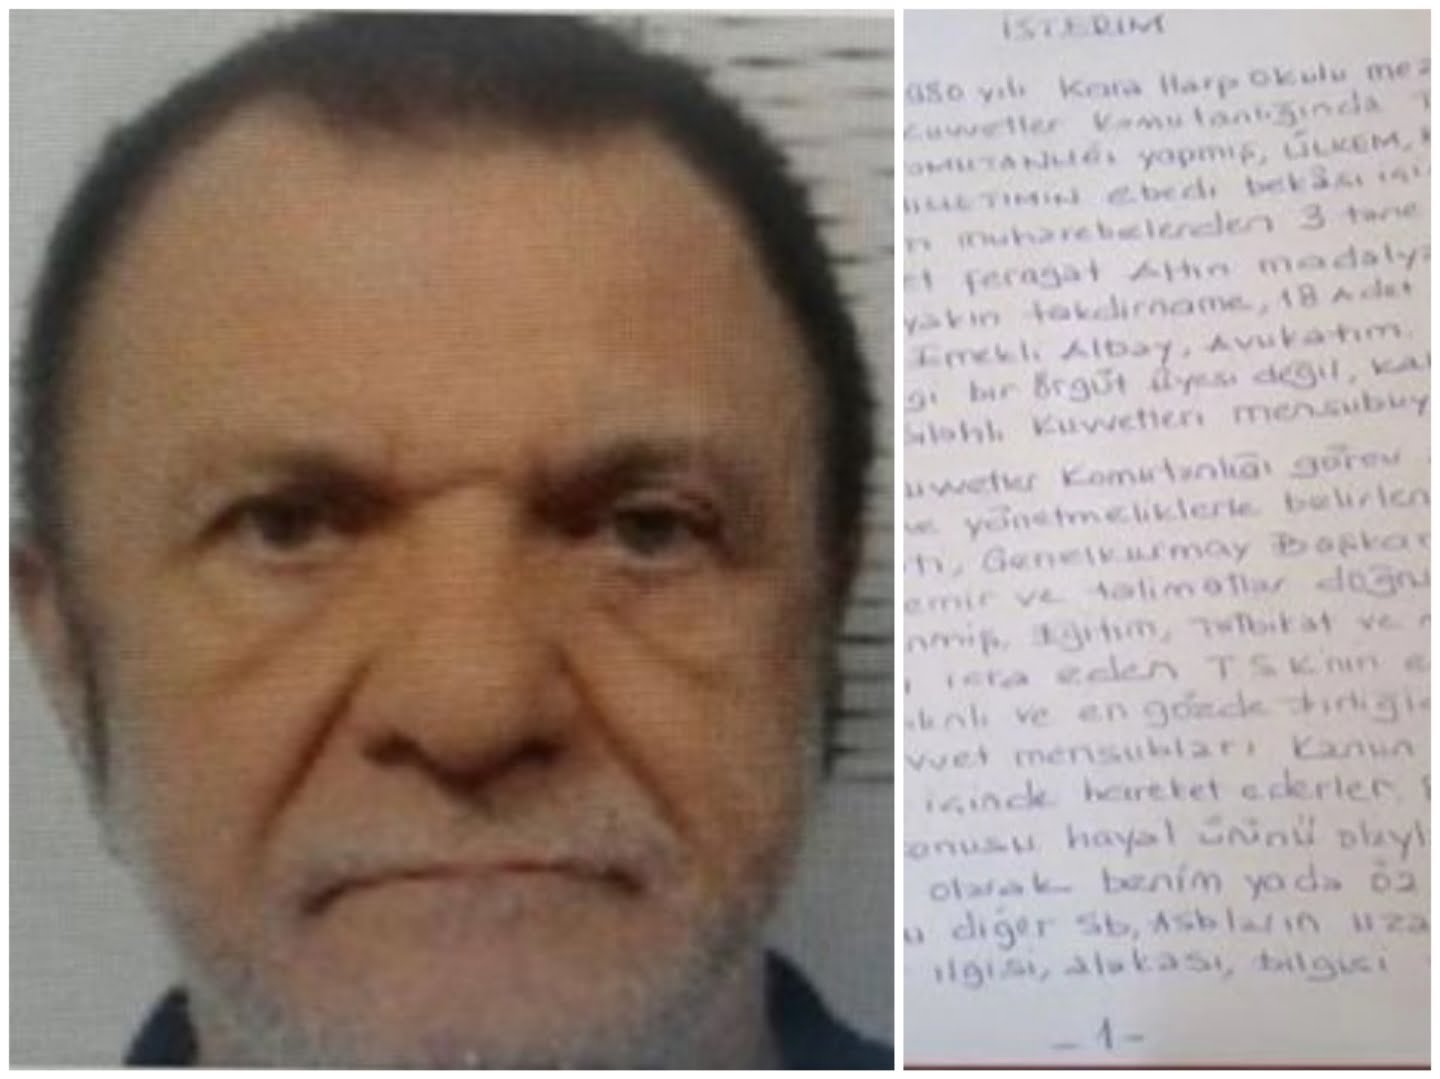 İSTERİM
980 yılı Kara Harp Okulu mez
Kuvvetler Komutanlığında
OMUTANLIĞI yapmış, ÜLKEM,
MİLLETİMİN ebedi bekâsı içi
n muharebelerden 3 tane
et feragat Altın madalya
yakın takdirname, 18 Adet
Emekli Albay, Avukatım.
gi bir örgüt üyesi değil, kah
Silahlı Kuvvetleri mensubuy
uvvetler Komutanlığı görev
ve yönetmeliklerle belirlen
ti, Genelkurmay Başkan
emir ve talimatlar doğru
nmiş, Eğitim, Tatbikat ve
ı icra eden TSK'nın e
kalı ve en gözde birliği
vvet mensubları Kanun
içinde hareket ederler.
onusu hayal ürünü olayl
olarak benim yada öz
u diğer Sb, Asbların uza
ilgisi, alakası, bilgisi
- 1 -